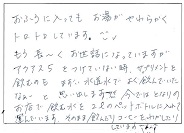 おふろに入っても お湯が やわらかく
トロトロしています。
もう長〜くお世話になっていますが
アクアス5をつけていない時、サプリメントを
飲むのも まずい水道水で よく飲んでいた
なぁ〜と 思い出します。今ではとなりの
お店で 飲む水を2ℓのペットボトルに入れて
運んでいます。そのまま飲んだりコーヒーをわかしたり
しています